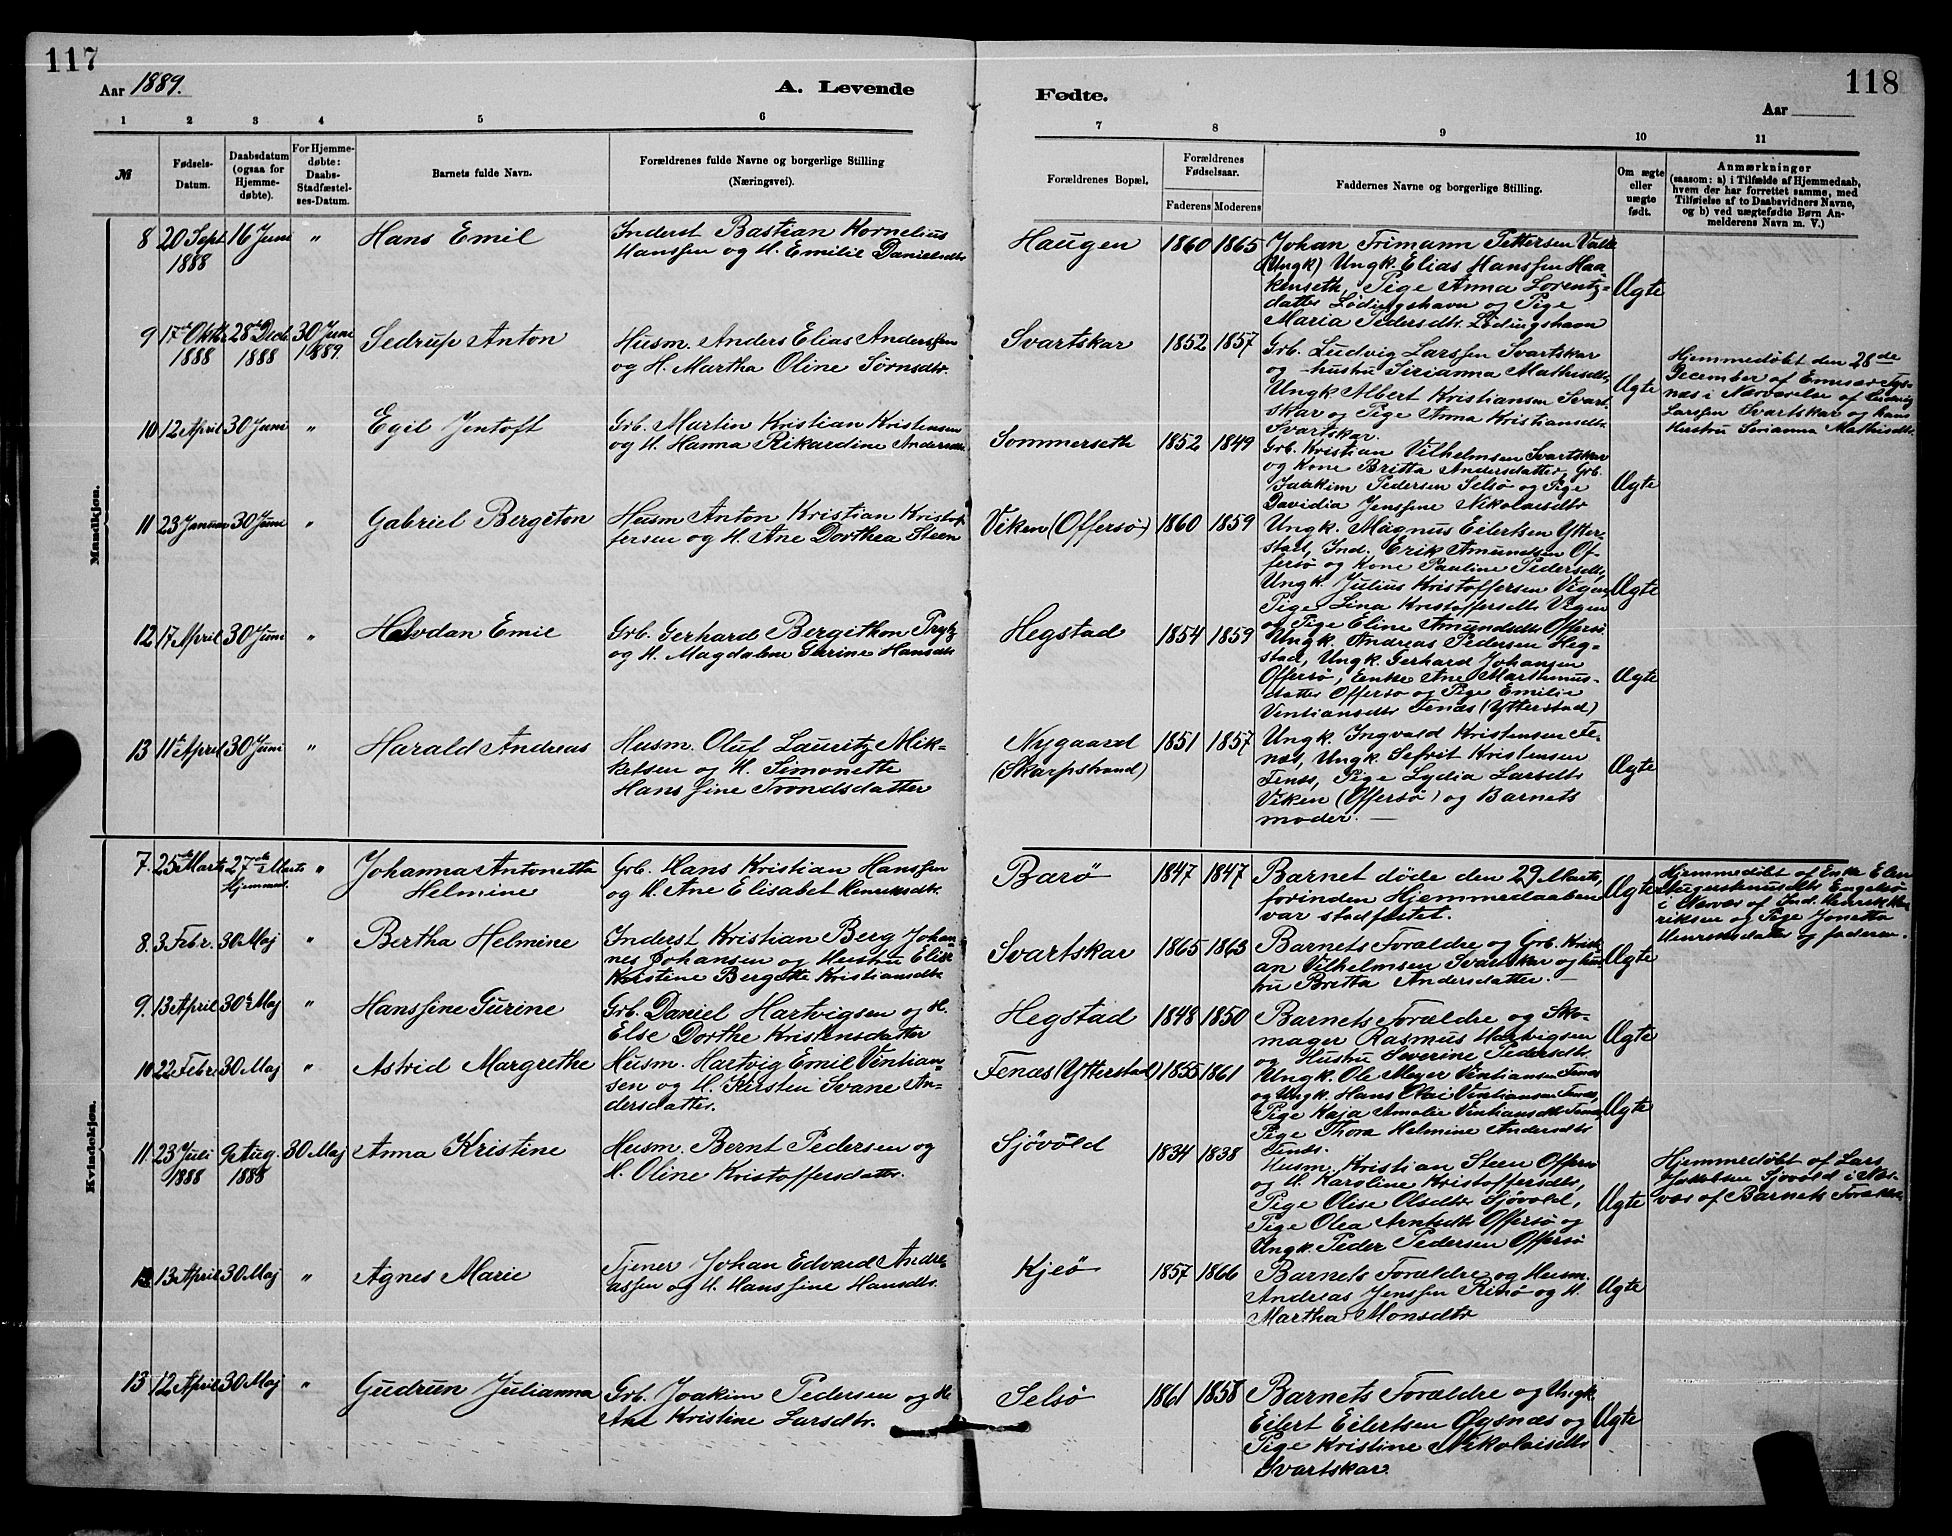 117
118
Aar 1889.
A. Levende
Fødte.
Aar
1
2
3
4
5
6
7
8
9
10
11
№
Fødsels-
Datum.
Daabsdatum
(ogsaa for
Hjemme-
døbte).
For Hjemme-
døbte:
Daabs-
Stadfæstel-
ses-Datum.
Barnets fulde Navn.
Forældrenes fulde Navne og borgerlige Stilling
(Næringsvei).
Forældrenes Bopæl.
Forældrenes
Fødselsaar.
Faderens
Moderens
Faddernes Navne og borgerlige Stilling.
Om ægte
eller
uægte
født.
Anmærkninger
(saasom: a) i Tilfælde af Hjemmedaab,
hvem der har forrettet samme, med
Tilføielse af to Daabsvidners Navne,
og b) ved uægtefødte Børn An-
melderens Navn m. V.)
Mandkjøn.
8 20 Sept 16 Juni " Hans Emil
1888
Inderst Bastian Kornelius
Hanssen og H. Emilie Danielsdtr
Haugen 1860 1865
Johan Trimann Pettersen Valle
(Ungk) Ungk. Elias Hanssen Haa-
kenseth, Pige Anna Lorentz-
datter Lødingshavn og Pige
Maria Pedersdtr. Lødingshavn
Ægte
9 17de Oktbr. 28de Decb. 30 Juni Sedrup Anton
1888 1888 1889.
Husm. Anders Elias Anderssen
og H. Martha Oline Sørnsdtr.
Svartskar 1852 1857
Grb. Ludvig Larssen Svartskar
og hustru Serianna Mathisdtr,
Ungk Albert Kristiansen Svart-
skar og Pige Anna Kristiansdtr
Svartskar.
Ægte
Hjemmedøbt den 28de
December af Emissær Tys-
næs i Nærværelse af Ludvig
Larssen Svartskar og hans
Hustru Serianna Mathisdtr.
10 12 April 30 Juni " Egil Jentoft
Grb. Martin Kristian Kristensen
og H. Hanna Rikardine Andersdtr.
Sommerseth 1852 1849
Grb. Kristian Vilhelmsen Svartskar
og Kone Britta Andersdatter, Grb.
Joakim Pedersen Selsø og Pige
Davidia Jenssine Nikolaisdtr
Ægte
11 23 Januar 30 Juni " Gabriel Bergiton
Husm Anton Kristian Kristof-
fersen og H. Ane Dorthea Steen
Viken (Offersø) 1860 1859
Ungk. Magnus Eilertsen Ytter-
stad, Ind. Erik Amundsen Of-
fersø og Kone Pauline Pedersdtr,
Ungk. Julius Kristoffersen Vigen,
Pige Lina Kristoffersdtr Vigen
og Pige Eline Amundsdtr Offersø.
Ægte
12 17 April 30 Juni " Halvdan Emil
Grb. Gerhard Bergithon Prytz
og H. Magdalene Gurine Hansdtr
Hegstad 1854 1859
Ungk. Andreas Pedersen Heg-
stad, Ungk. Gerhard Johansen
Offersø, Enke Ane Marthinus-
datter Offersø og Pige Emilie
Ventiansdtr Fenæs (Ytterstad)
Ægte
13 11te April 30 Juni " Harald Andreas
Husm. Oluf Lauritz Mik-
kelsen og H. Simonette
Hanssine Trondsdatter
Nygaard 1851 1857
(Skarpstrand)
Ungk. Ingvald Kristensen Fe-
næs, Ungk. Sefrit Kristensen
Fenæs, Pige Lydia Larsdtr
Viken (Offersø) og Barnets
moder. —
Ægte
Kvindekjøn.
7. 25de Marts 27de Marts " Johanna Antonetta
Hjemmed. Helmine
Grb. Hans Kristian Hanssen
og H. Ane Elisabet Henriksdtr.
Barø 1847 1847
Barnet døde den 29 Marts,
forinden Hjemmedaaben
var stadfæstet.
Ægte
Hjemmedøbt af Enke Elen
Augustinusdtr Engelsø
i Nærvær af Ind. Henrik Hen-
riksen og Pige Jonetta
Henriksdatter og faderen.
8. 3 Febr. 30 Maj " Bertha Helmine
Inderst Kristian Berg Johan-
nes Johansen og Hustru Elise
Kristine Bergitte Kristiansdtr
Svartskar 1865 1863
Barnets Forældre og Grb. Kristi-
an Vilhelmsen Svartskar og hus-
tru Britta Andersdatter. —
Ægte
9. 13 April 30 Maj " Hanssine Gurine
Grb. Daniel Hartvigsen og H.
Else Dorthe Kristensdatter
Hegstad 1848 1850
Barnets Forældre og Sko-
mager Rasmus Hartvigsen
og Hustru Severine Pedersdtr.
Ægte
10 22 Febr. 30 Maj " Astrid Margrethe
Husm. Hartvig Emil Ventian-
sen og H. Kristen Svane An-
dersdatter.
Fenæs (Ytterstad) 1855 1861
Ungk. Ole Meyer Ventiansen Fenæs
og Ungk. Hans Olai Ventiansen Fenæs,
Pige Kaja Amalie Ventiansdtr Fenæs,
Pige Thora Helmine Andersdtr
Fenæs.
Ægte
11 23 Juli 9 Aug. 30 Maj Anna Kristine
1888 1888
Husm. Bernt Pedersen og
H. Oline Kristoffersdatter.
Sjøvold 1834 1838
Husm. Kristian Steen Offersø
og H. Karoline Kristoffersdtr,
Pige Olise Olsdtr Sjøvold,
Pige Olea Arntsdtr Offersø og
Ungk. Peder Pedersen Offersø
Ægte
Hjemmedøbt af Lars
Jakobsen Sjøvold i Nær-
vær af Barnets Forældre.
12 13 April 30 Maj " Agnes Marie
Tjener Johan Edvard Andre-
assen og H. Hanssine Hansdtr.
Kjeø 1857 1866
Barnets Forældre og Husm.
Andreas Jenssen Rinø og H.
Martha Monsdtr
Ægte
13 12 April 30 Maj " Gudrun Julianna
Grb. Joakim Pedersen og H.
Ane Kristine Larsdtr.
Selsø 1861 1858
Barnets Forældre og Ungk.
Eilert Eilertsen Øgsnæs og
Pige Kristine Nikolaisdtr
Svartskar.
Ægte